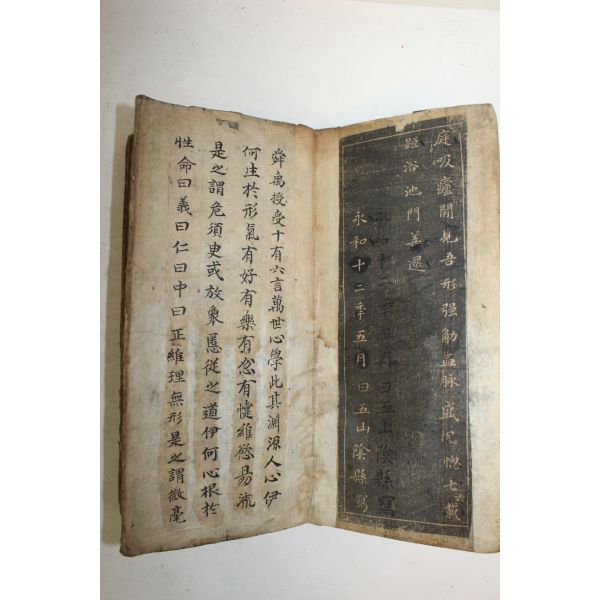 庭吸廬間見吾形强筋益脉
七載
踞浴池門善還
永和十二年五月
日五山陰縣寫
舜禹授受十有六言萬世心學此其淵源人心伊
何生於形氣有好有樂有忿有懥維慾易流
是之謂危須臾或放衆慝從之道伊何心根於
性命曰義曰仁曰中曰正維理無形是之謂微毫